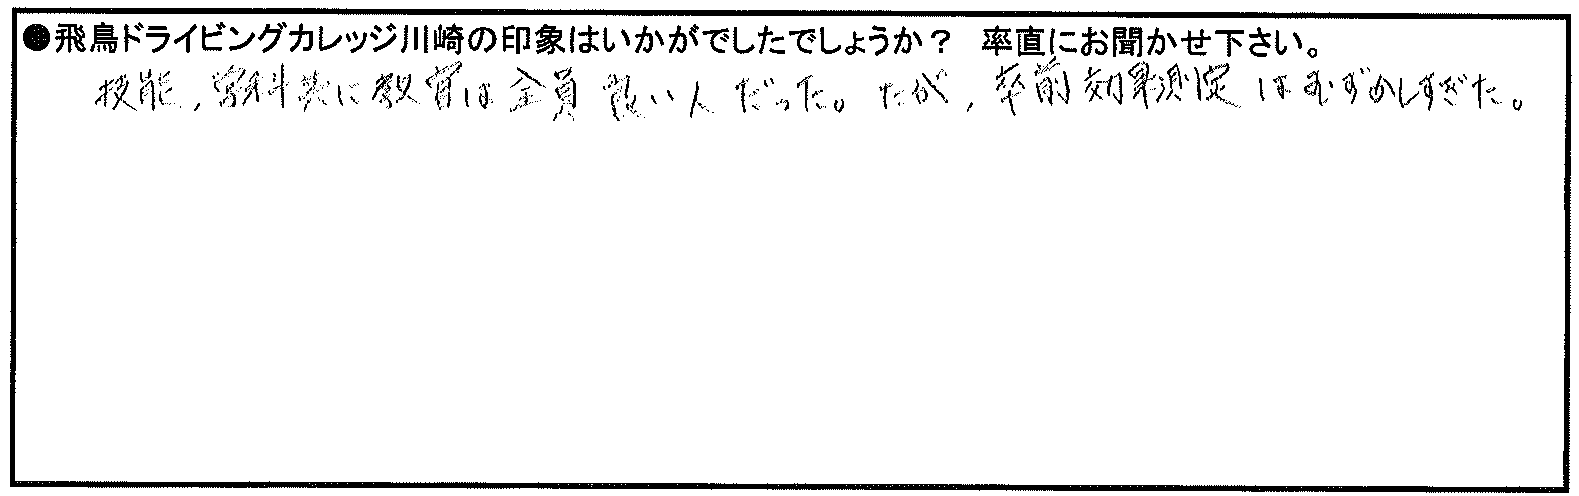 ●飛鳥ドライビングカレッジ川崎の印象はいかがでしたでしょうか？　率直にお聞かせ下さい。
技能，学科共に教官は全員良い人だった。だが，卒前効果測定はむずかしすぎた。